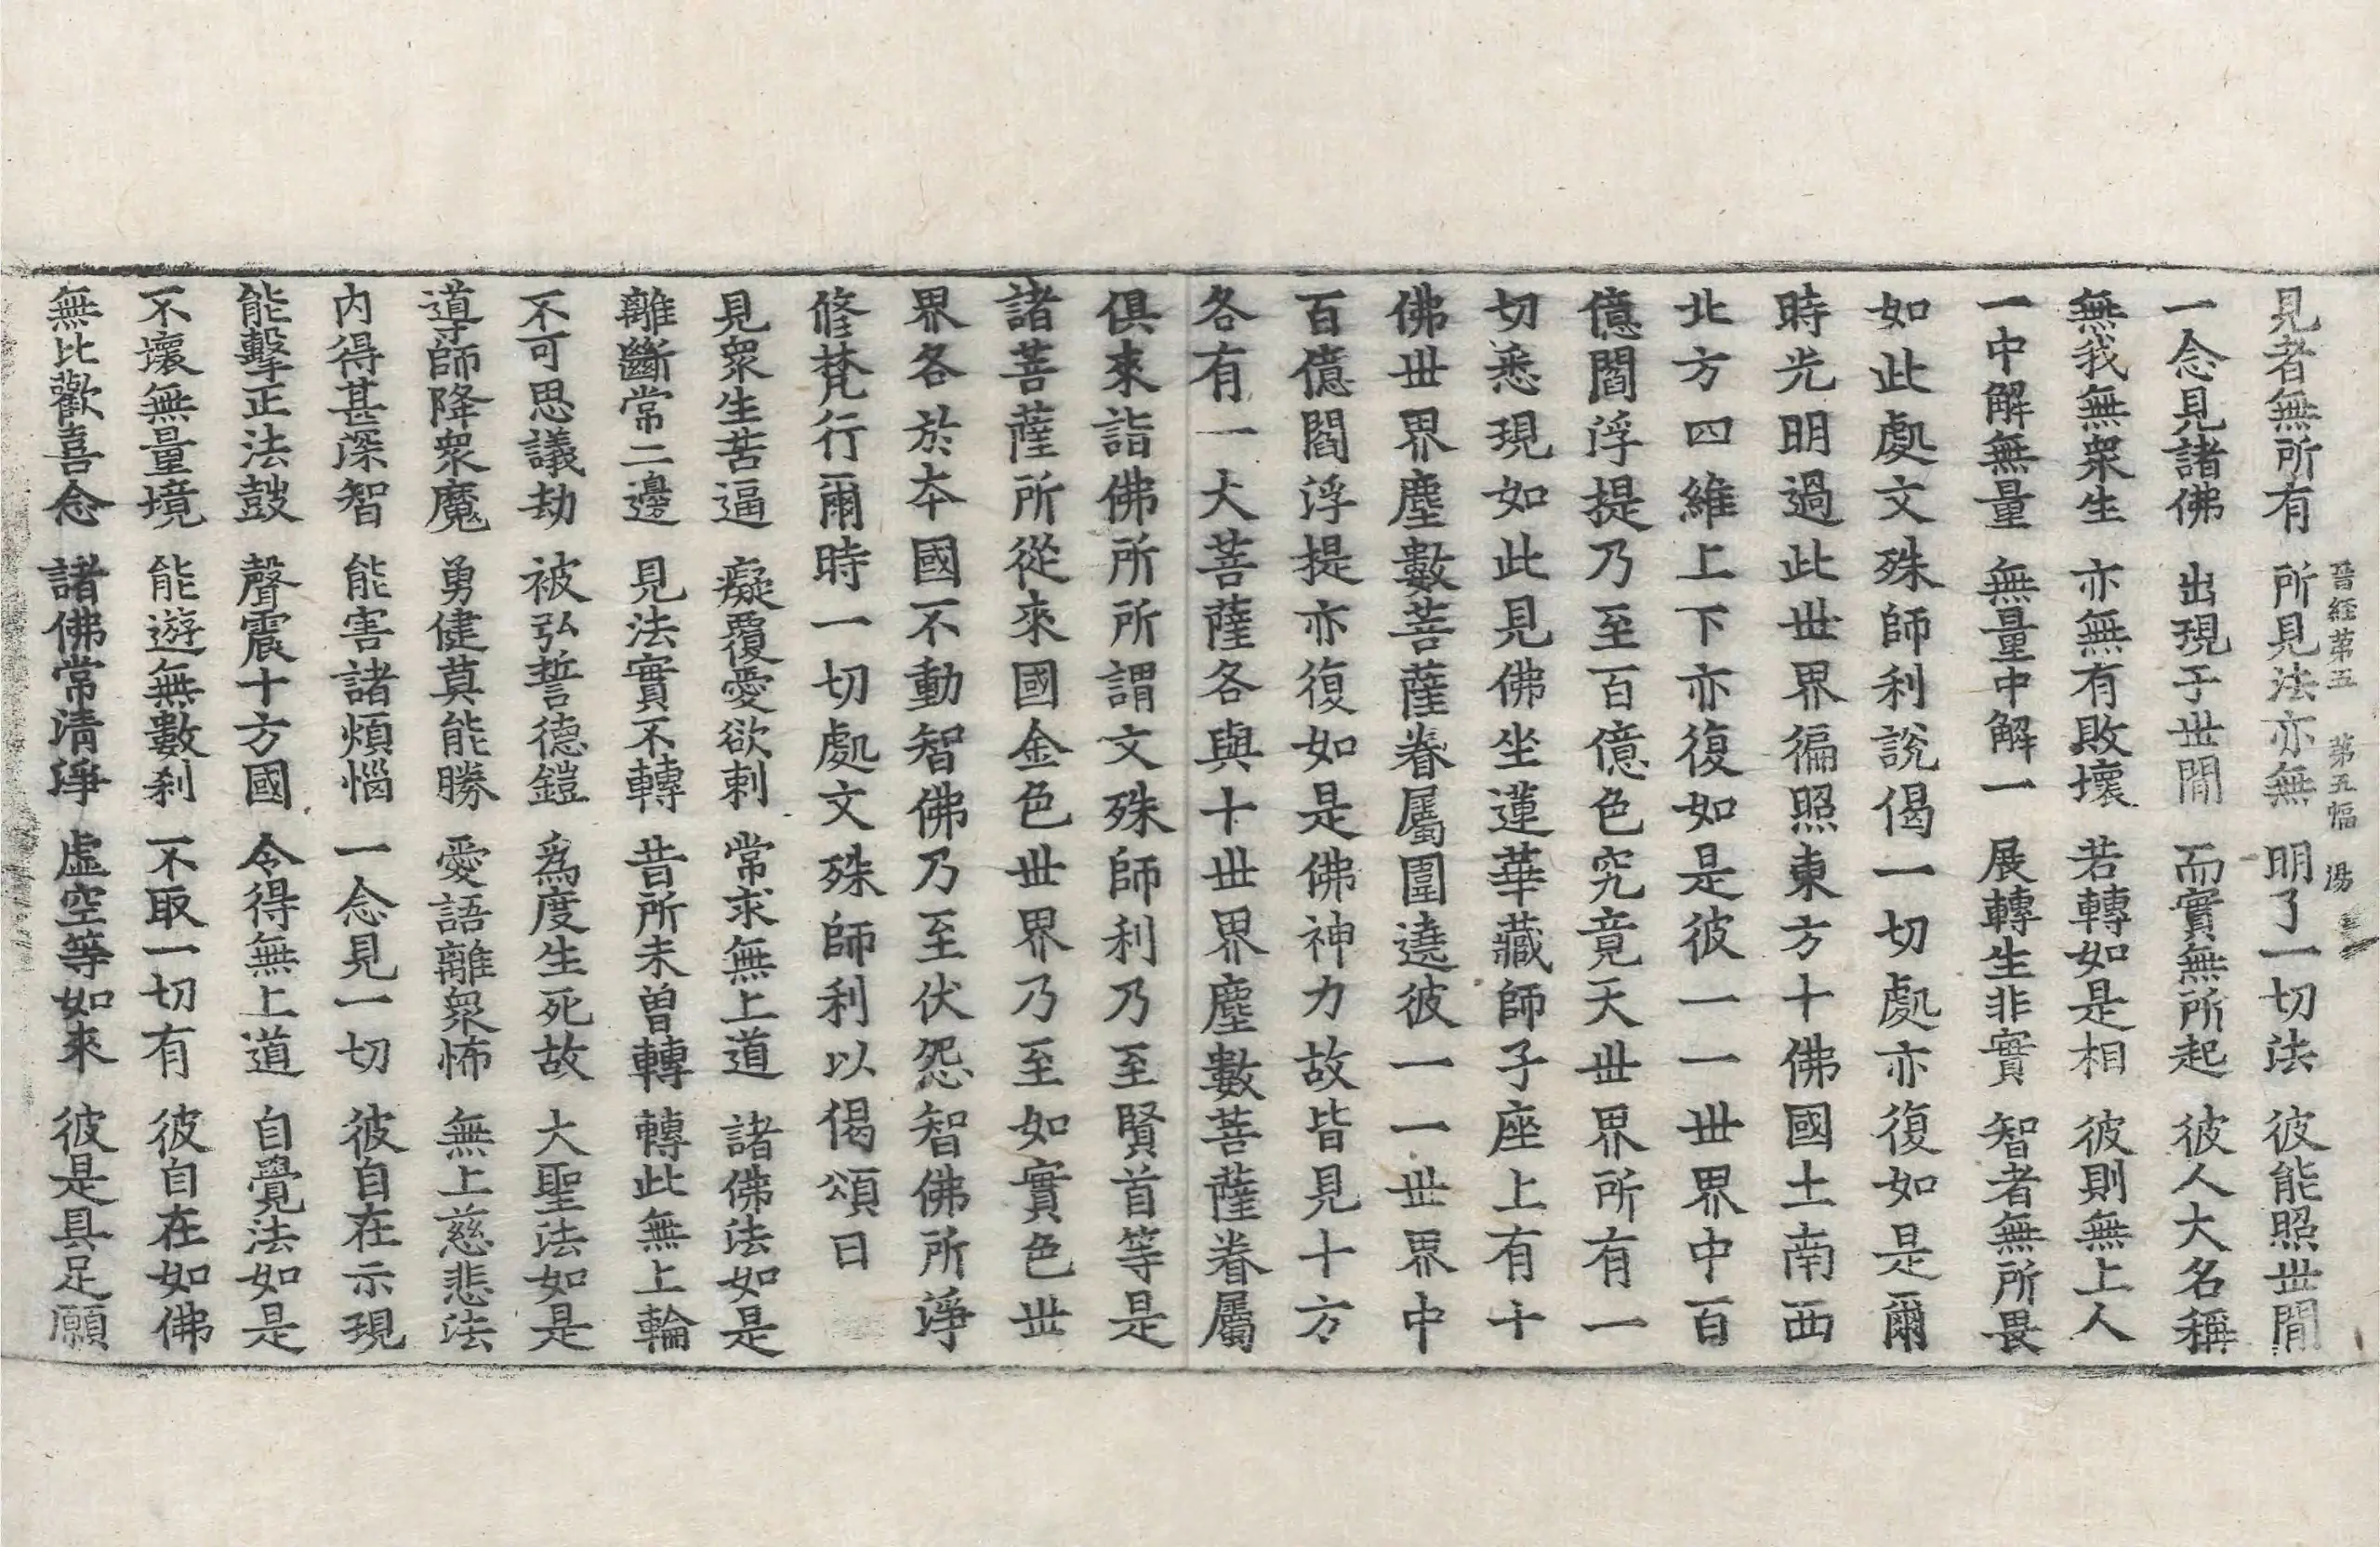 晉経第五　第五幅　湯
見者無所有　所見法亦無　明了一切法　彼能照丗閒
一念見諸佛　出現于丗閒　而實無所起　彼人大名稱
無我無衆生　亦無有敗壞　若轉如是相　彼則無上人
一中解無量　無量中解一　展轉生非實　智者無所畏
如此處文殊師利說偈一切處亦復如是爾
時光明過此丗界徧照東方十佛國土南西
北方四維上下亦復如是彼一一丗界中百
億閻浮提乃至百億色究竟天丗界所有一
切悉現如此見佛坐蓮華藏師子座上有十
佛丗界塵數菩薩眷屬圍遶彼一一丗界中
百億閻浮提亦復如是佛神力故皆見十方
各有一大菩薩各與十丗界塵數菩薩眷屬
俱來詣佛所所謂文殊師利乃至賢首等是
諸菩薩所從來國金色丗界乃至如實色丗
界各於本國不動智佛乃至伏怨智佛所淨
修梵行爾時一切處文殊師利以偈頌曰
見衆生苦逼　癡覆愛欲刺　常求無上道　諸佛法如是
離斷常二邊　見法實不轉　昔所未曽轉　轉此無上輪
不可思議劫　被弘誓德鎧　為度生死故　大聖法如是
導師降衆魔　勇健莫能勝　愛語離衆怖　無上慈悲法
内得甚深智　能害諸煩惱　一念見一切　彼自在示現
能擊正法鼓　聲震十方國　令得無上道　自覺法如是
不壞無量境　能遊無數刹　不取一切有　彼自在如佛
無比歡喜念　諸佛常清淨　虛空等如來　彼是具足願